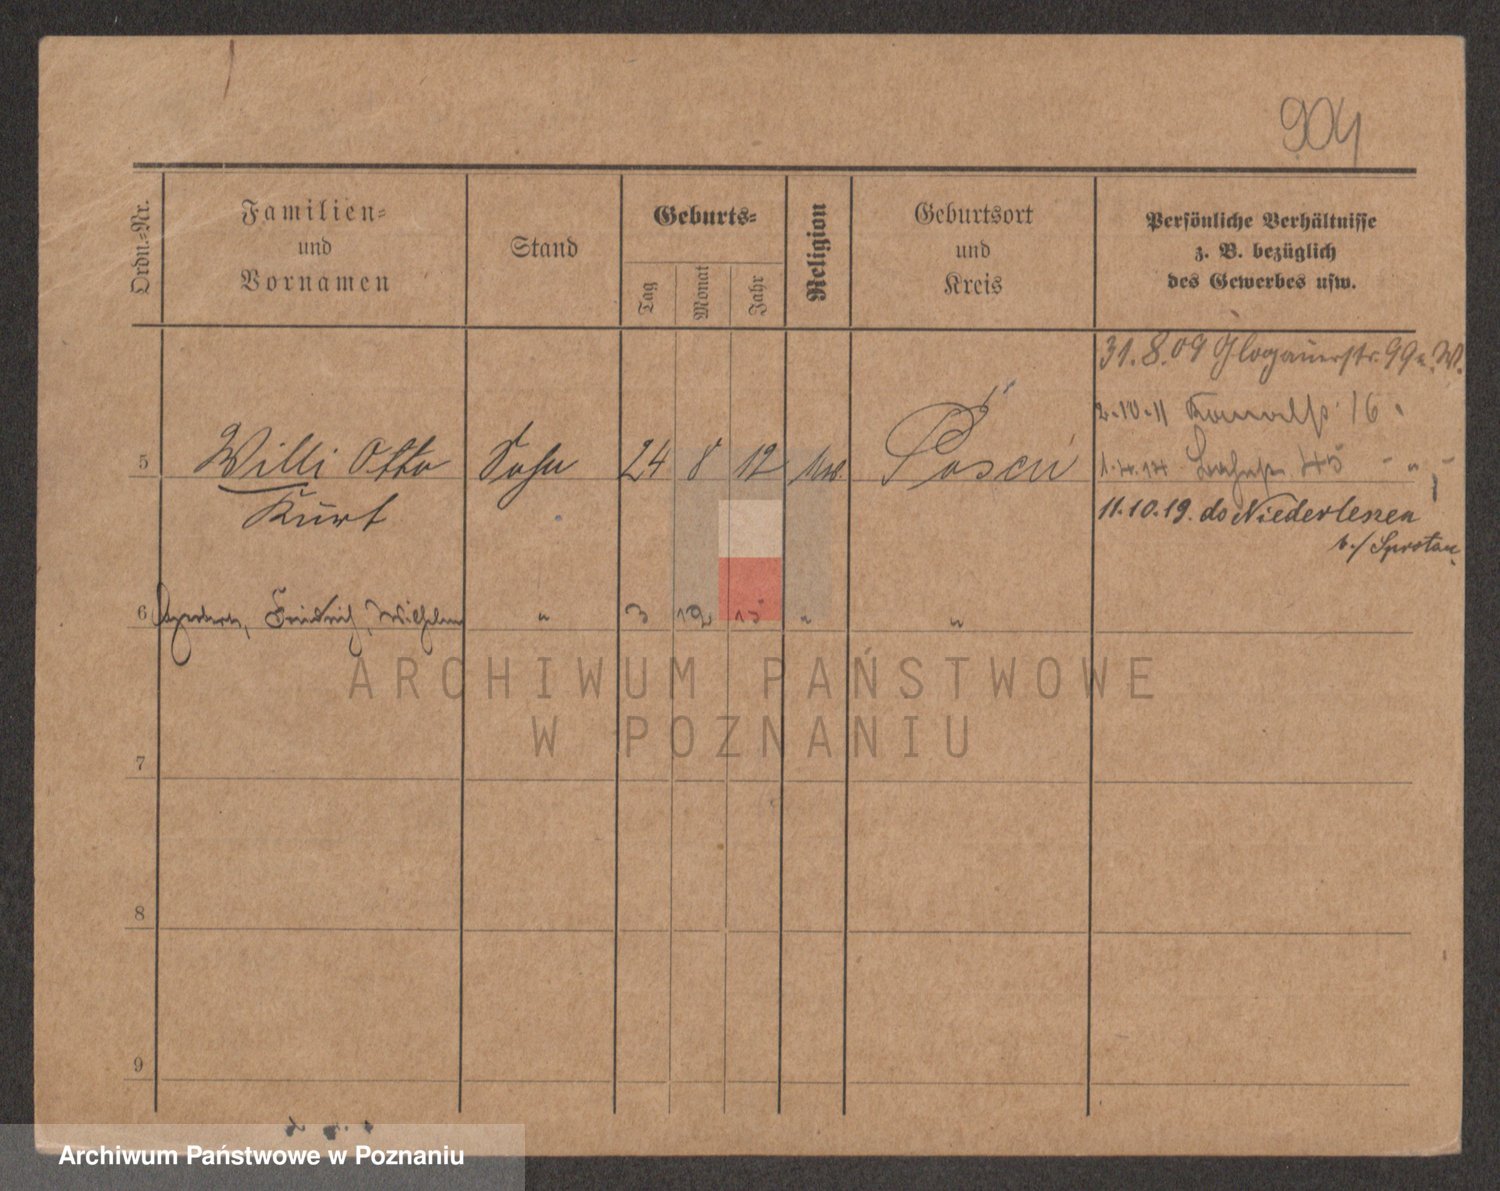 904
Ordn.-Nr.
Familien-
und
Vornamen
Stand
Geburts-
Tag
Monat
Jahr
Religion
Geburtsort
und
Kreis
Persönliche Verhältnisse
z. B. bezüglich
des Gewerbes usw.
31.8.09 Glogauerstr. 99
2.10.11 16
5 Willi Otto Sohn 24 8 12 Posen
1.4.14 45 " 
Kurt
11.10.19. do Niederleszen
b./ Sprottau
6 Friedrich, Wilhelm " 3 12 15 " "
ARCHIWUM PAŃSTWOWE
W POZNANIU
7
8
9
Archiwum Państwowe w Poznaniu